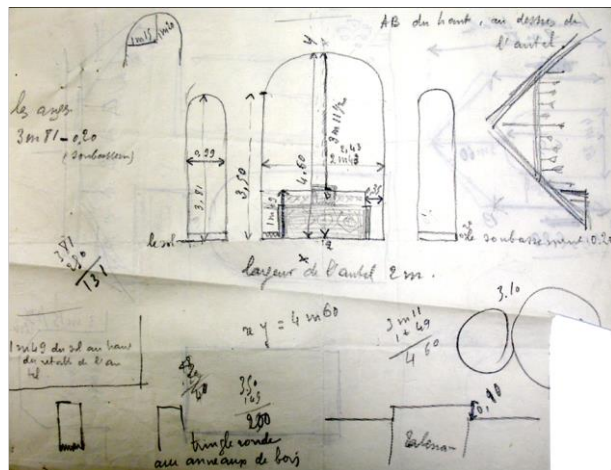 AB du haut, au dessus de
l'autel
1m15
1m20
les anges
3m81-0,20
(soubassem)
0,99
3,81
3,50
4,60
3m11/2
2,43
2m43
1m49
0,35
le sol
le soubassement 0.20
largeur de l'autel 2m.
381
250
131
x y = 4m60
3m11
1+49
4 60
3.10
1m49 du sol au haut
du retable de l'au
tel
350
149
200
tringle ronde
aux anneaux de bois
0,90